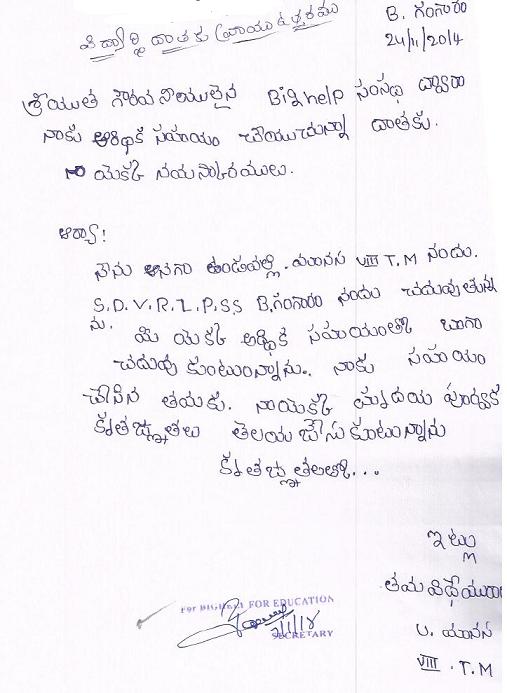 విద్యార్థి దాతకు వ్రాయు ఉత్తరము
B. గంగారం
24/11/2014
శ్రీయుత గౌరవనీయులైన Bighelp సంస్థ ద్వారా
నాకు ఆర్థిక సహాయం చేయుచున్నా దాతకు.
నా యొక్క నమస్కారములు.
ఆర్యా!
నేను అనగా ఉండవల్లి. మానస VIII T.M నందు.
S.D.V.R.Z.P.SS B.గంగారం నందు చదువుతున్న
ను. మీ యొక్క ఆర్థిక సహాయంతో బాగా
చదువు కుంటున్నాను. నాకు సహాయం
చేసిన తమకు. నాయొక్క హృదయ పూర్వక
కృతజ్ఞతలు తెలయ జేసుకుంటున్నాను
కృతజ్ఞతలతో...
ఇట్లు
తమ విధేయురా
U. మానస
VIII . T.M
For BIGHELP FOR EDUCATION
SECRETARY